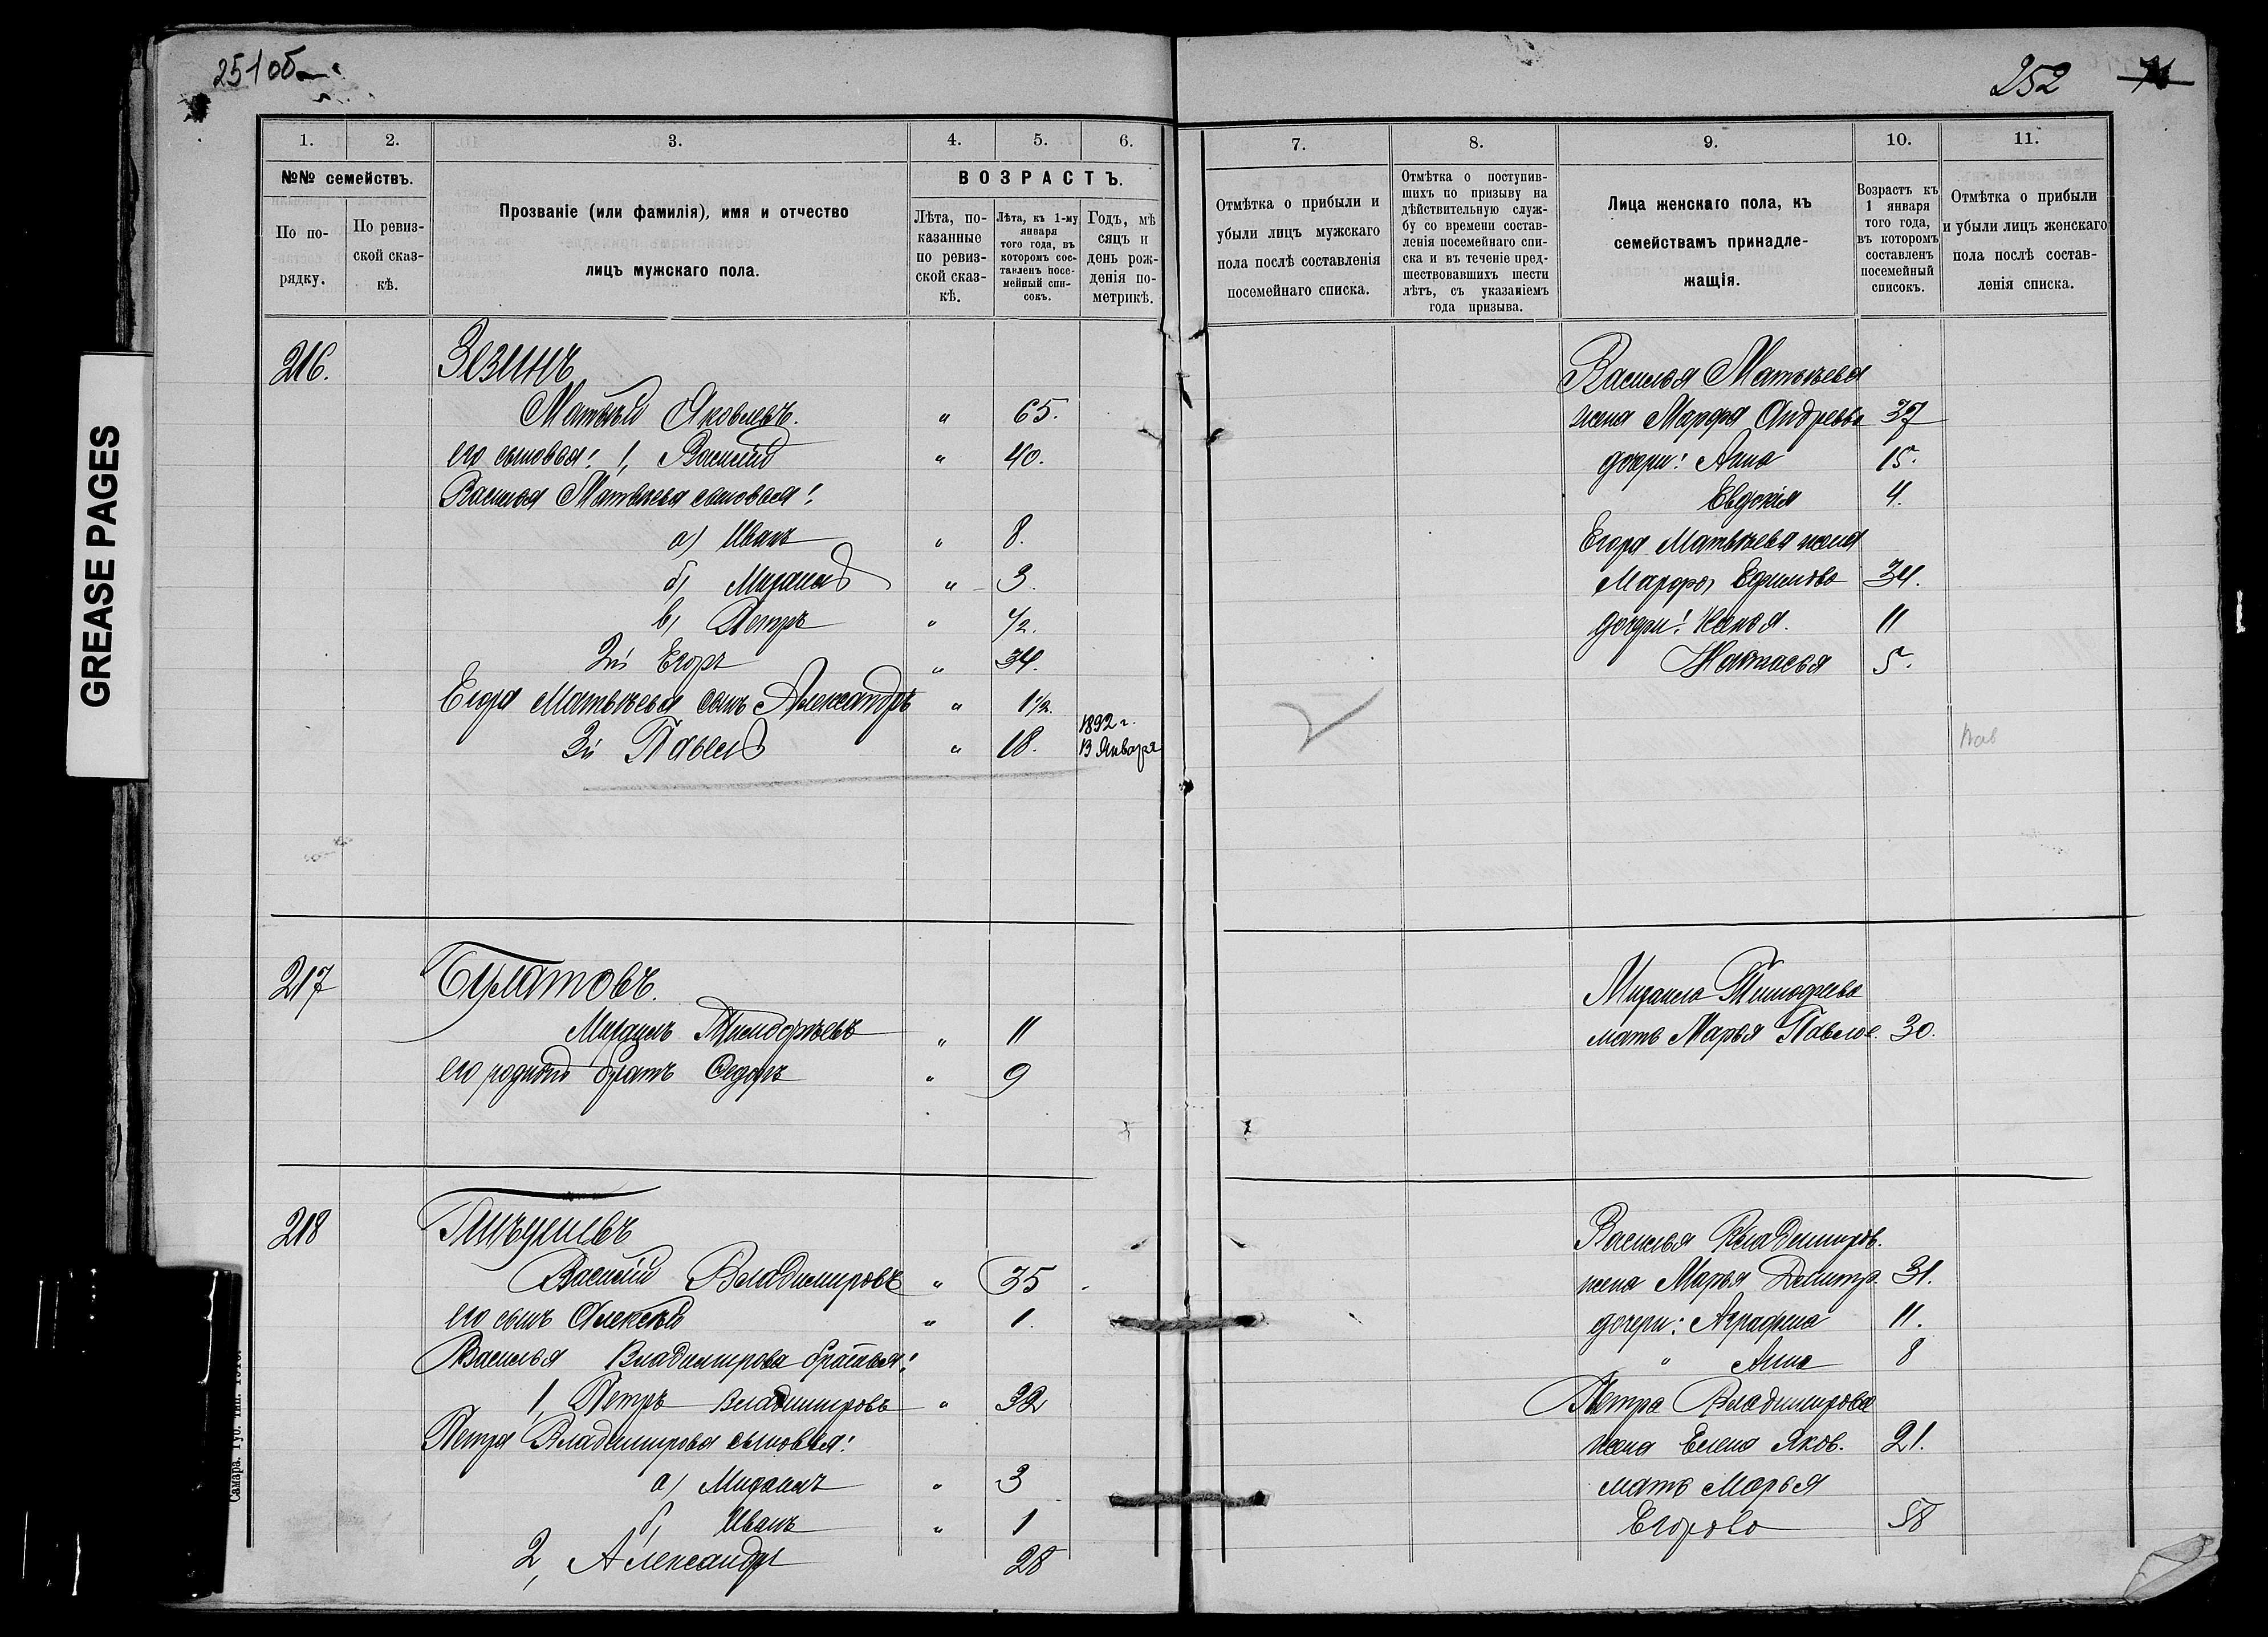 251об
252
GREASE PAGES
1. 2. 3. 4. 5. 6.
№№ семействъ.
По порядку.
По ревизской сказкѣ.
Прозваніе (или фамилія), имя и отчество
лицъ мужскаго пола.
ВОЗРАСТЪ.
Лѣта, показанные по ревизской сказкѣ.
Лѣта, къ 1-му января того года, въ которомъ составленъ посемейный списокъ.
Годъ, мѣсяцъ и день рожденія по метрикѣ.
7. 8. 9. 10. 11.
Отмѣтка о прибыли и
убыли лицъ мужскаго
пола послѣ составленія
посемейнаго списка.
Отмѣтка о поступив-
шихъ по призыву на
дѣйствительную служ-
бу со времени состав-
ленія посемейнаго спи-
ска и въ теченіе пред-
шествовавшихъ шести
лѣтъ, съ указаніемъ
года призыва.
Лица женскаго пола, къ
семействамъ принадле-
жащія.
Возрастъ къ
1 января
того года,
въ которомъ
составленъ
посемейный
списокъ.
Отмѣтка о прибыли
и убыли лицъ женскаго
пола послѣ состав-
ленія списка.
216. Зезинъ
Матвѣй Яковлевъ. " 65.
его сыновья: 1, Василій " 40.
Василья Матвѣева сыновья:
а) Иванъ " 8.
б) Михаилъ " 3.
в) Петръ " 1/2.
2й Егоръ " 34.
Егора Матвѣева сынъ Александръ " 1 1/2.
3й Павелъ " 18. 1892 г. 13 Января
Василья Матвѣева
жена Марфа Андреева 37
дочери: Анна 15.
Евдокія 4.
Егора Матвѣева жена
Марфа Ефимова 34.
дочери: 11
Настасья 5.
217 Булатовъ.
Михаилъ Тимофѣевъ " 11
его родной братъ Федоръ " 9
Михаила Тимофеева
мать Марья Павлов. 30.
218
Василій Владимировъ " 35
его сынъ Алексѣй " 1.
Василья Владимирова братья:
1, Петръ Владимировъ " 32
Петра Владимирова сыновья:
а) Михаилъ " 3
б, Иванъ " 1
2, Александръ 28
Василья Владимиров.
жена Марья Дмитр. 31.
дочери: Аграфена 11.
" Анна 8
Петра Владимирова
жена Елена Яков. 21.
мать Марья
Егорова 58
Самара. Губ. Тип.